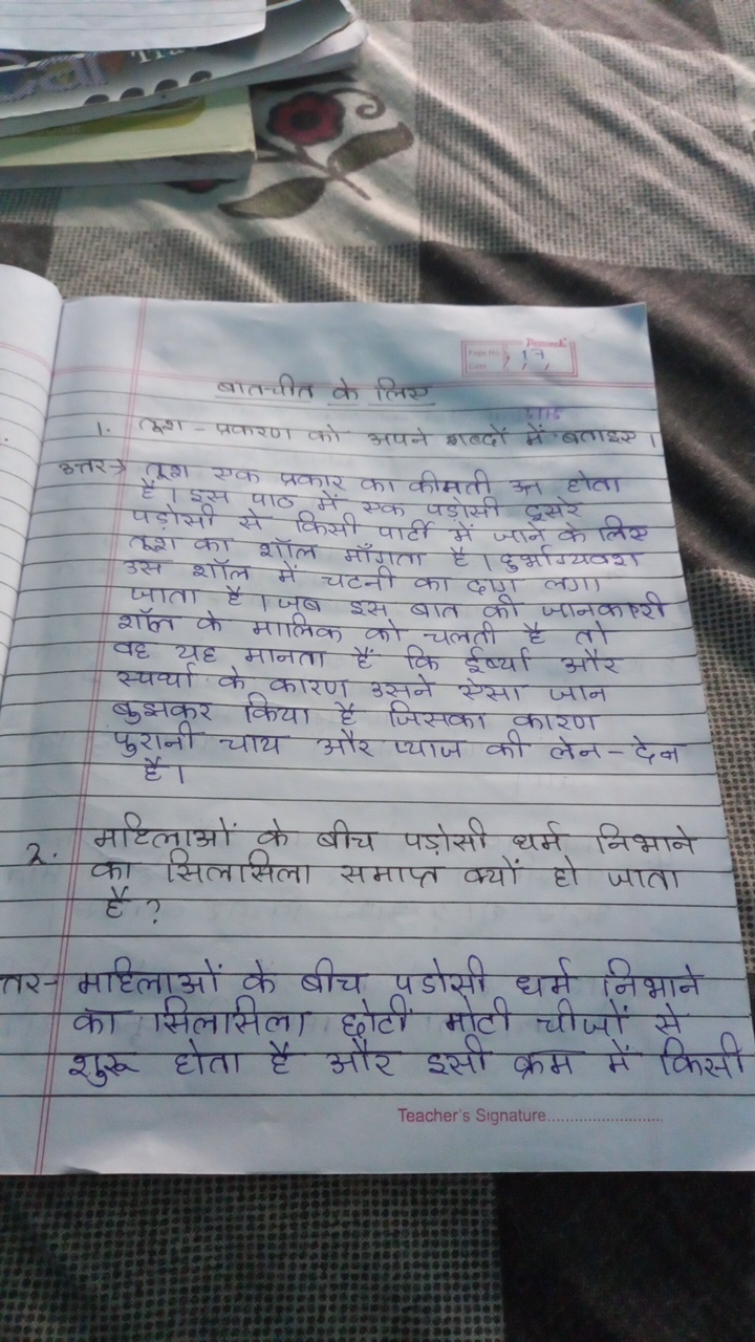 Page No. 17
Date
बातचीत के लिए
1. तूश - प्रकरण को अपने शब्दों में बताइए ।
उत्तर→ तूश एक प्रकार का कीमती ऊन होता
है । इस पाठ में एक पड़ोसी दूसरे
पड़ोसी से किसी पार्टी में जाने के लिए
तूश का शॉल माँगता है । दुर्भाग्यवश
उस शॉल में चटनी का दाग लगा
जाता है । जब इस बात की जानकारी
शॉल के मालिक को चलती है तो
वह यह मानता है कि ईर्ष्या और
स्पर्धा के कारण उसने ऐसा जान
बुझकर किया है जिसका कारण
पुरानी चाय और प्याज की लेन - देन
है ।
2. महिलाओं के बीच पड़ोसी धर्म निभाने
का सिलसिला समाप्त क्यों हो जाता
है ?
त्तर- महिलाओं के बीच पडोसी धर्म निभाने
का सिलसिला छोटी मोटी चीजों से
शुरू होता है और इसी क्रम में किसी
Teacher's Signature